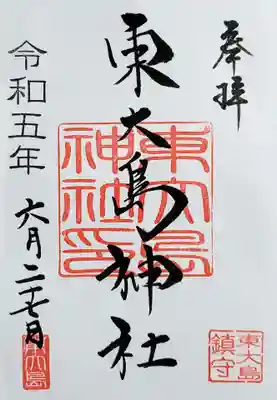 奉拝
東大島神社
東大島
神社印
東大島
鎮守
令和五年
六月二十七日
東大島